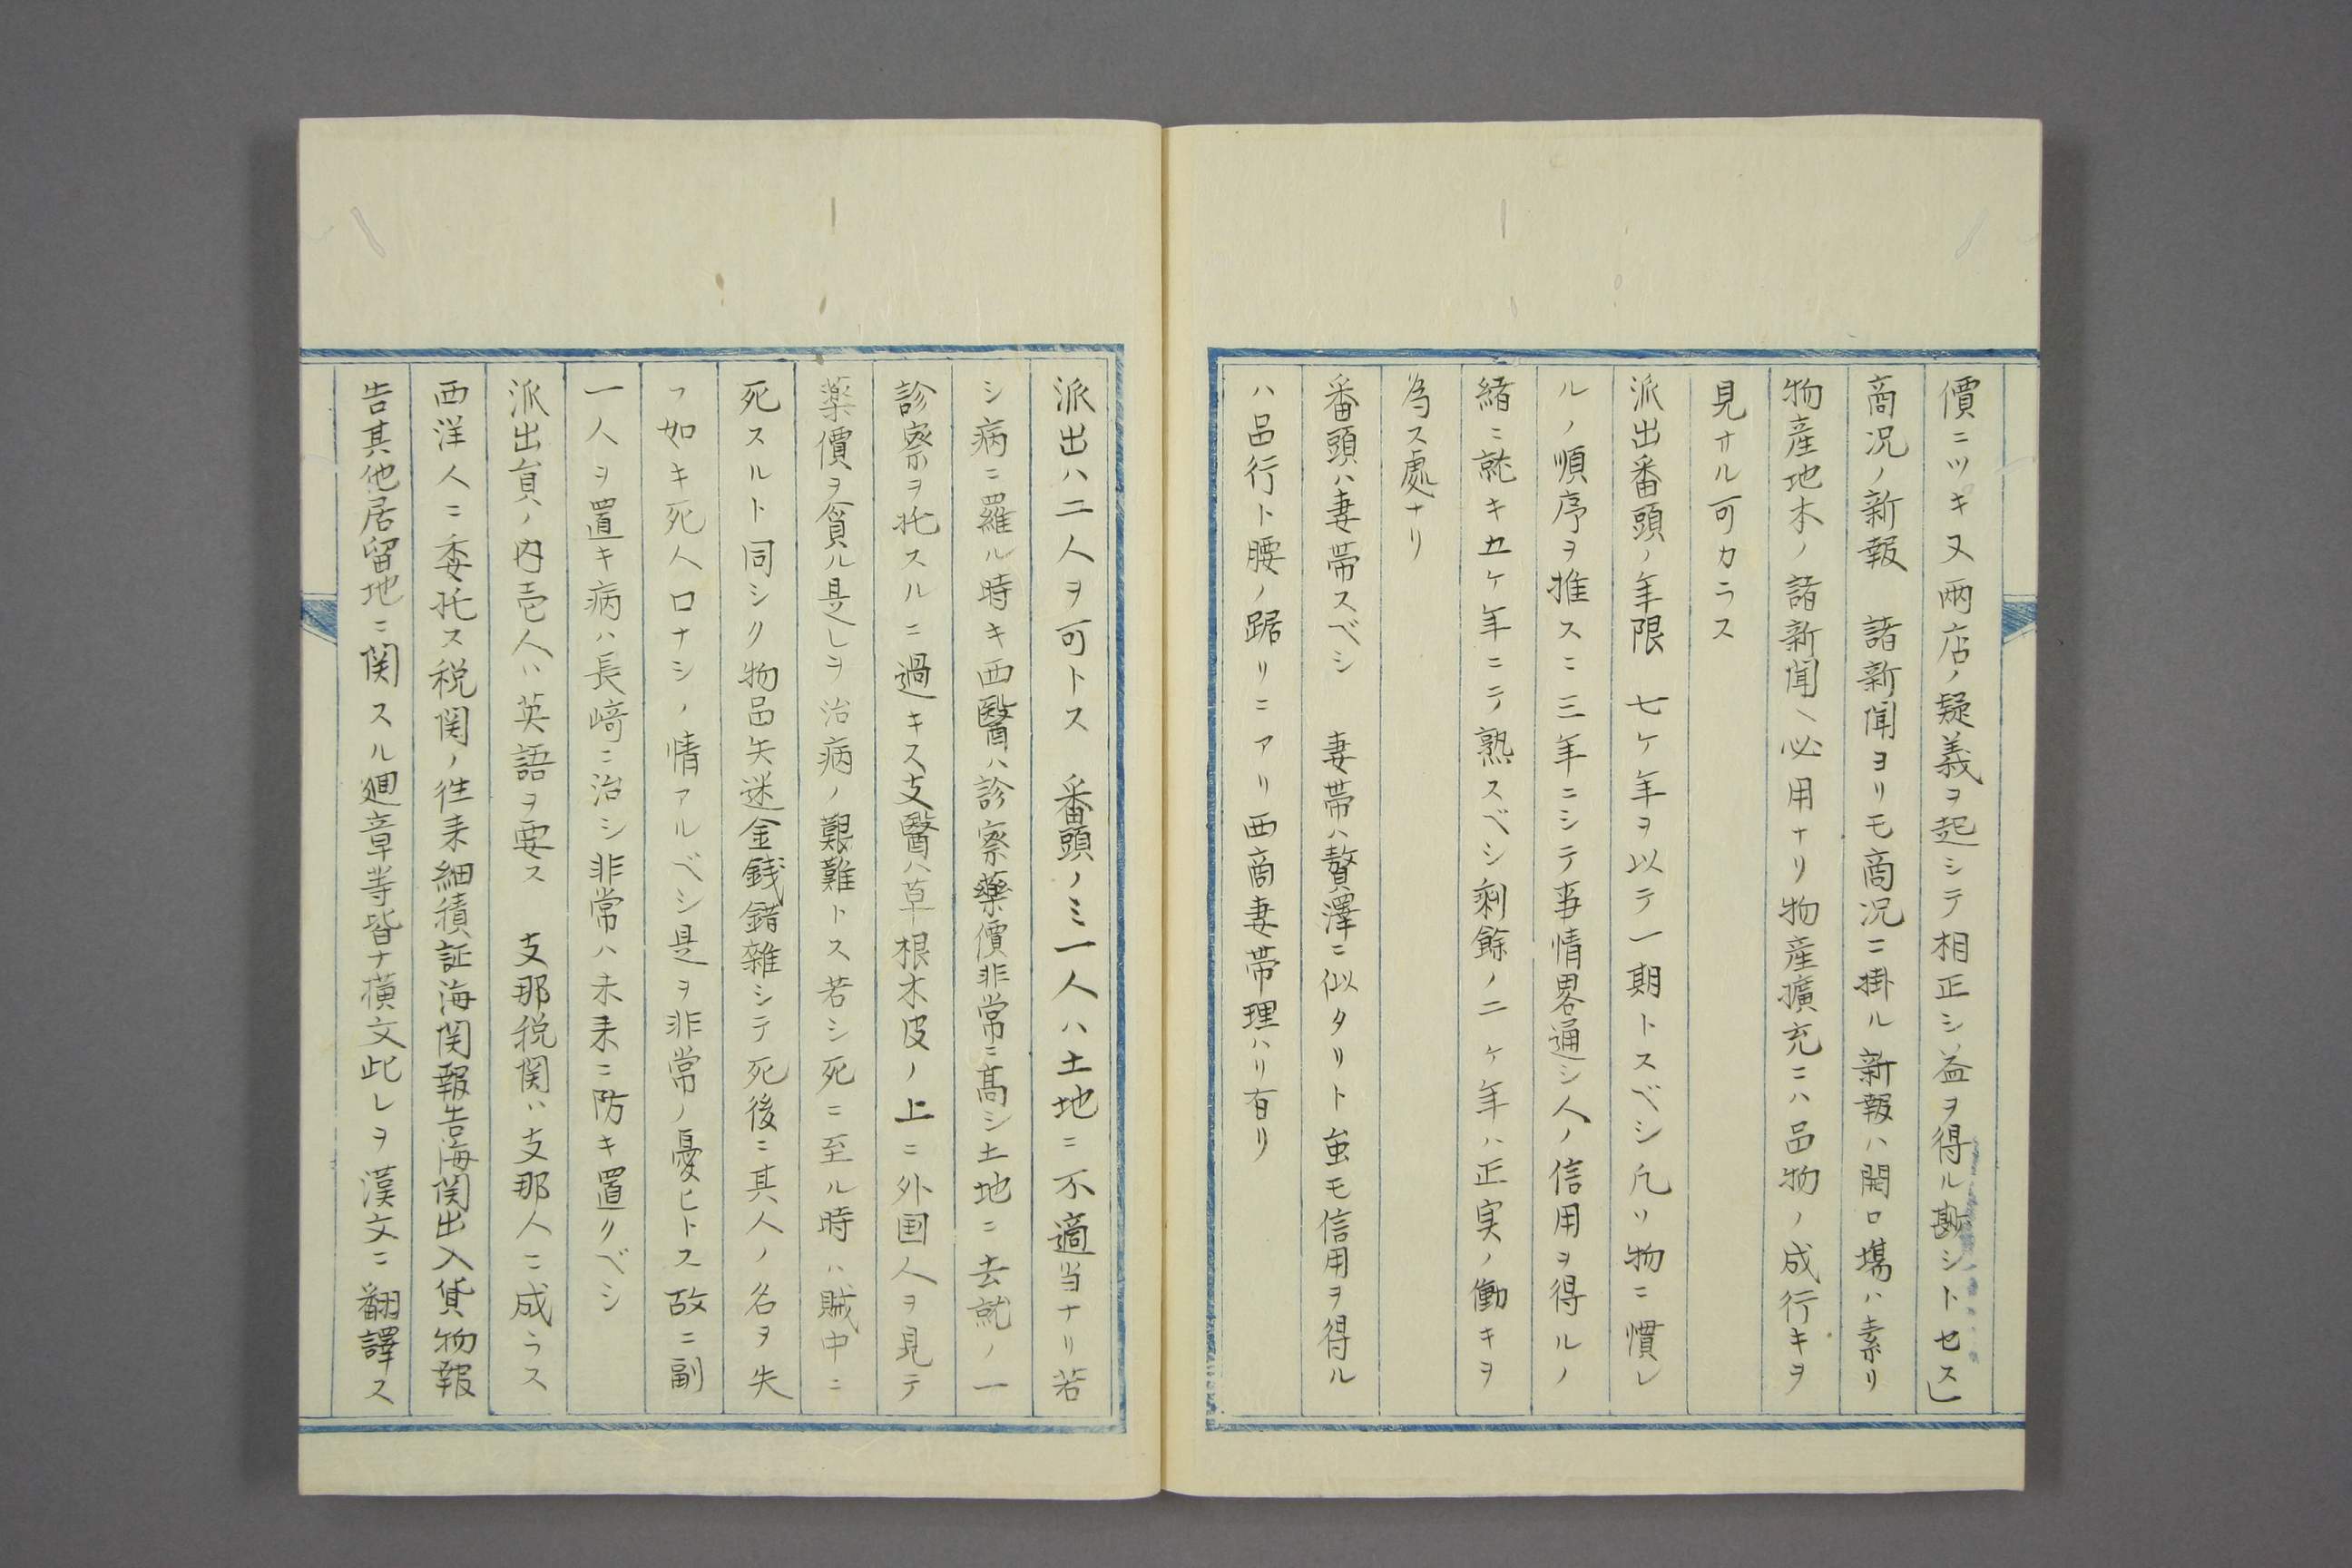 價ニツキ又兩店ノ疑義ヲ起シテ相正シ益ヲ得ル斟シトセス」
商况ノ新報　諸新聞ヨリモ商况ニ掛ル新報ハ開口塲ハ素リ
物産地本ノ諸新聞ハ必用ナリ物産擴充ニハ品物ノ成行キヲ
見サル可カラス
派出番頭ノ年限　七ケ年ヲ以テ一期トスベシ凡ソ物ニ慣レ
ルノ順序ヲ推スニ三年ニシテ事情畧通シ人ノ信用ヲ得ルノ
緒ニ就キ五ケ年ニテ熟スベシ剰餘ノ二ケ年ハ正実ノ働キヲ
為ス處ナリ
番頭ハ妻帯スベシ　妻帯ハ贅澤ニ似タリト虽モ信用ヲ得ル
ハ品行ト腰ノ踞リニアリ西商妻帯理ハリ有リ
派出ハ二人ヲ可トス　番頭ノミ一人ハ土地ニ不適当ナリ若
シ病ニ羅ル時キ西醫ハ診察藥價非常ニ髙シ土地ニ去就ノ一
診察ヲ托スルニ過キス支醫ハ草根木皮ノ上ニ外国人ヲ見テ
薬價ヲ貪ル是レヲ治病ノ艱難トス若シ死ニ至ル時ハ賊中ニ
死スルト同シク物品矢迷金銭錯雜シテ死後ニ其人ノ名ヲ失
フ如キ死人口ナシノ情アルベシ是ヲ非常ノ憂ヒトス故ニ副
一人ヲ置キ病ハ長﨑ニ治シ非常ハ未耒ニ防キ置クベシ
派出員ノ内壱人ハ英語ヲ要ス　支那税関ハ支那人ニ成ラス
西洋人ニ委托ス税関ノ徃耒細積証海関報告海関出入貨物報
告其他居留地ニ関スル廻章等皆ナ横文此レヲ漢文ニ翻譯ス